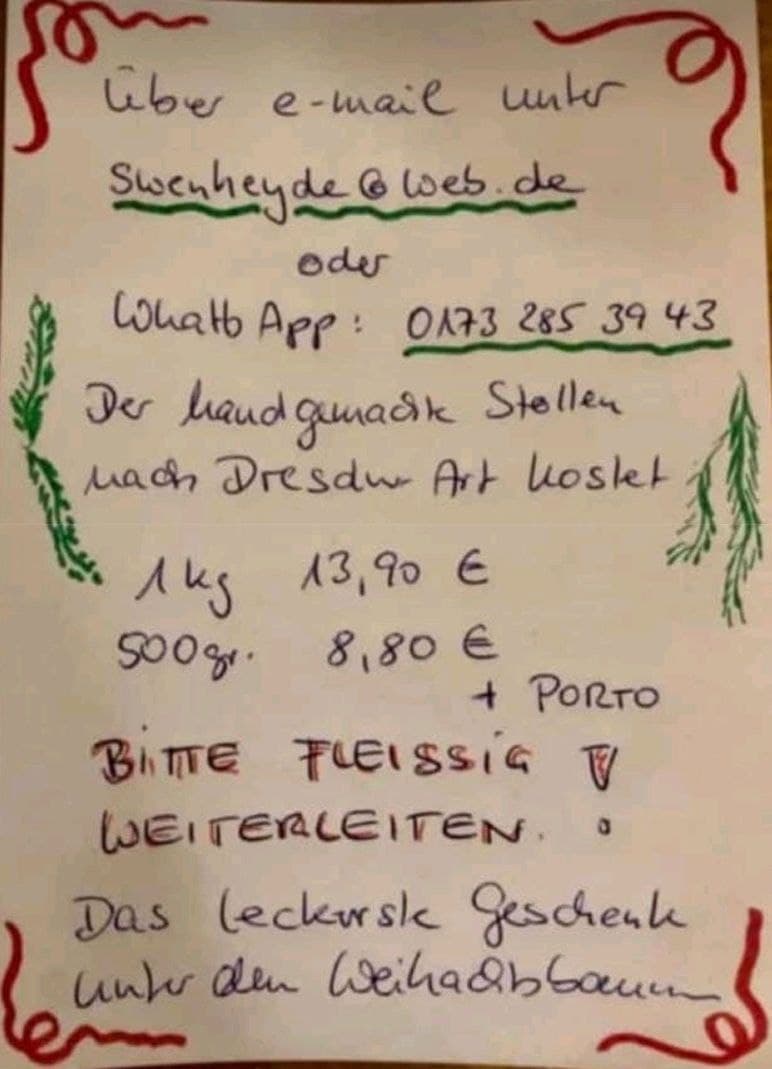 Über e-mail unter
Swenheyde@web.de
oder
Whatts App: 0173 285 39 43
Der handgemachte Stollen
nach Dresdner Art kostet
1kg 13,90 €
500gr. 8,80 €
+ PORTO
BITTE FLEISSIG !
WEITERLEITEN.
Das leckerste Geschenk
unter den Weihnachtsbaum